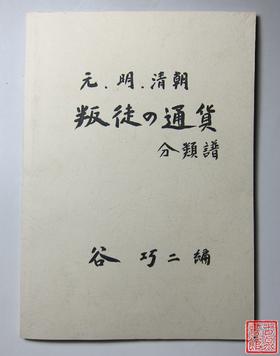 元.明.清朝
叛徒の通貨
分類譜
谷巧二編